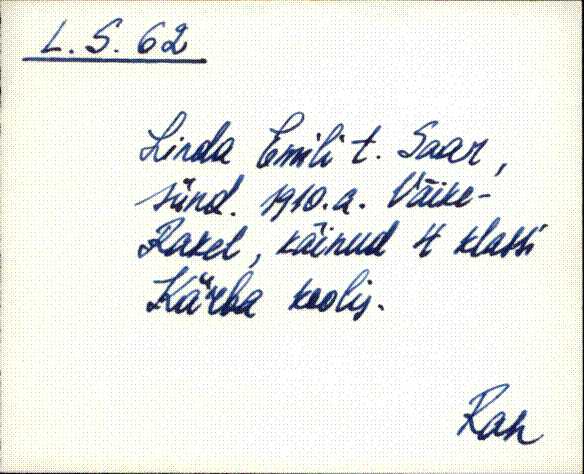 L. S. 62
Linda Emili t. Saar,
sünd. 1910.a. Väike-
Rakel, käinud 4 klassi
Kärba koolis.
Ran